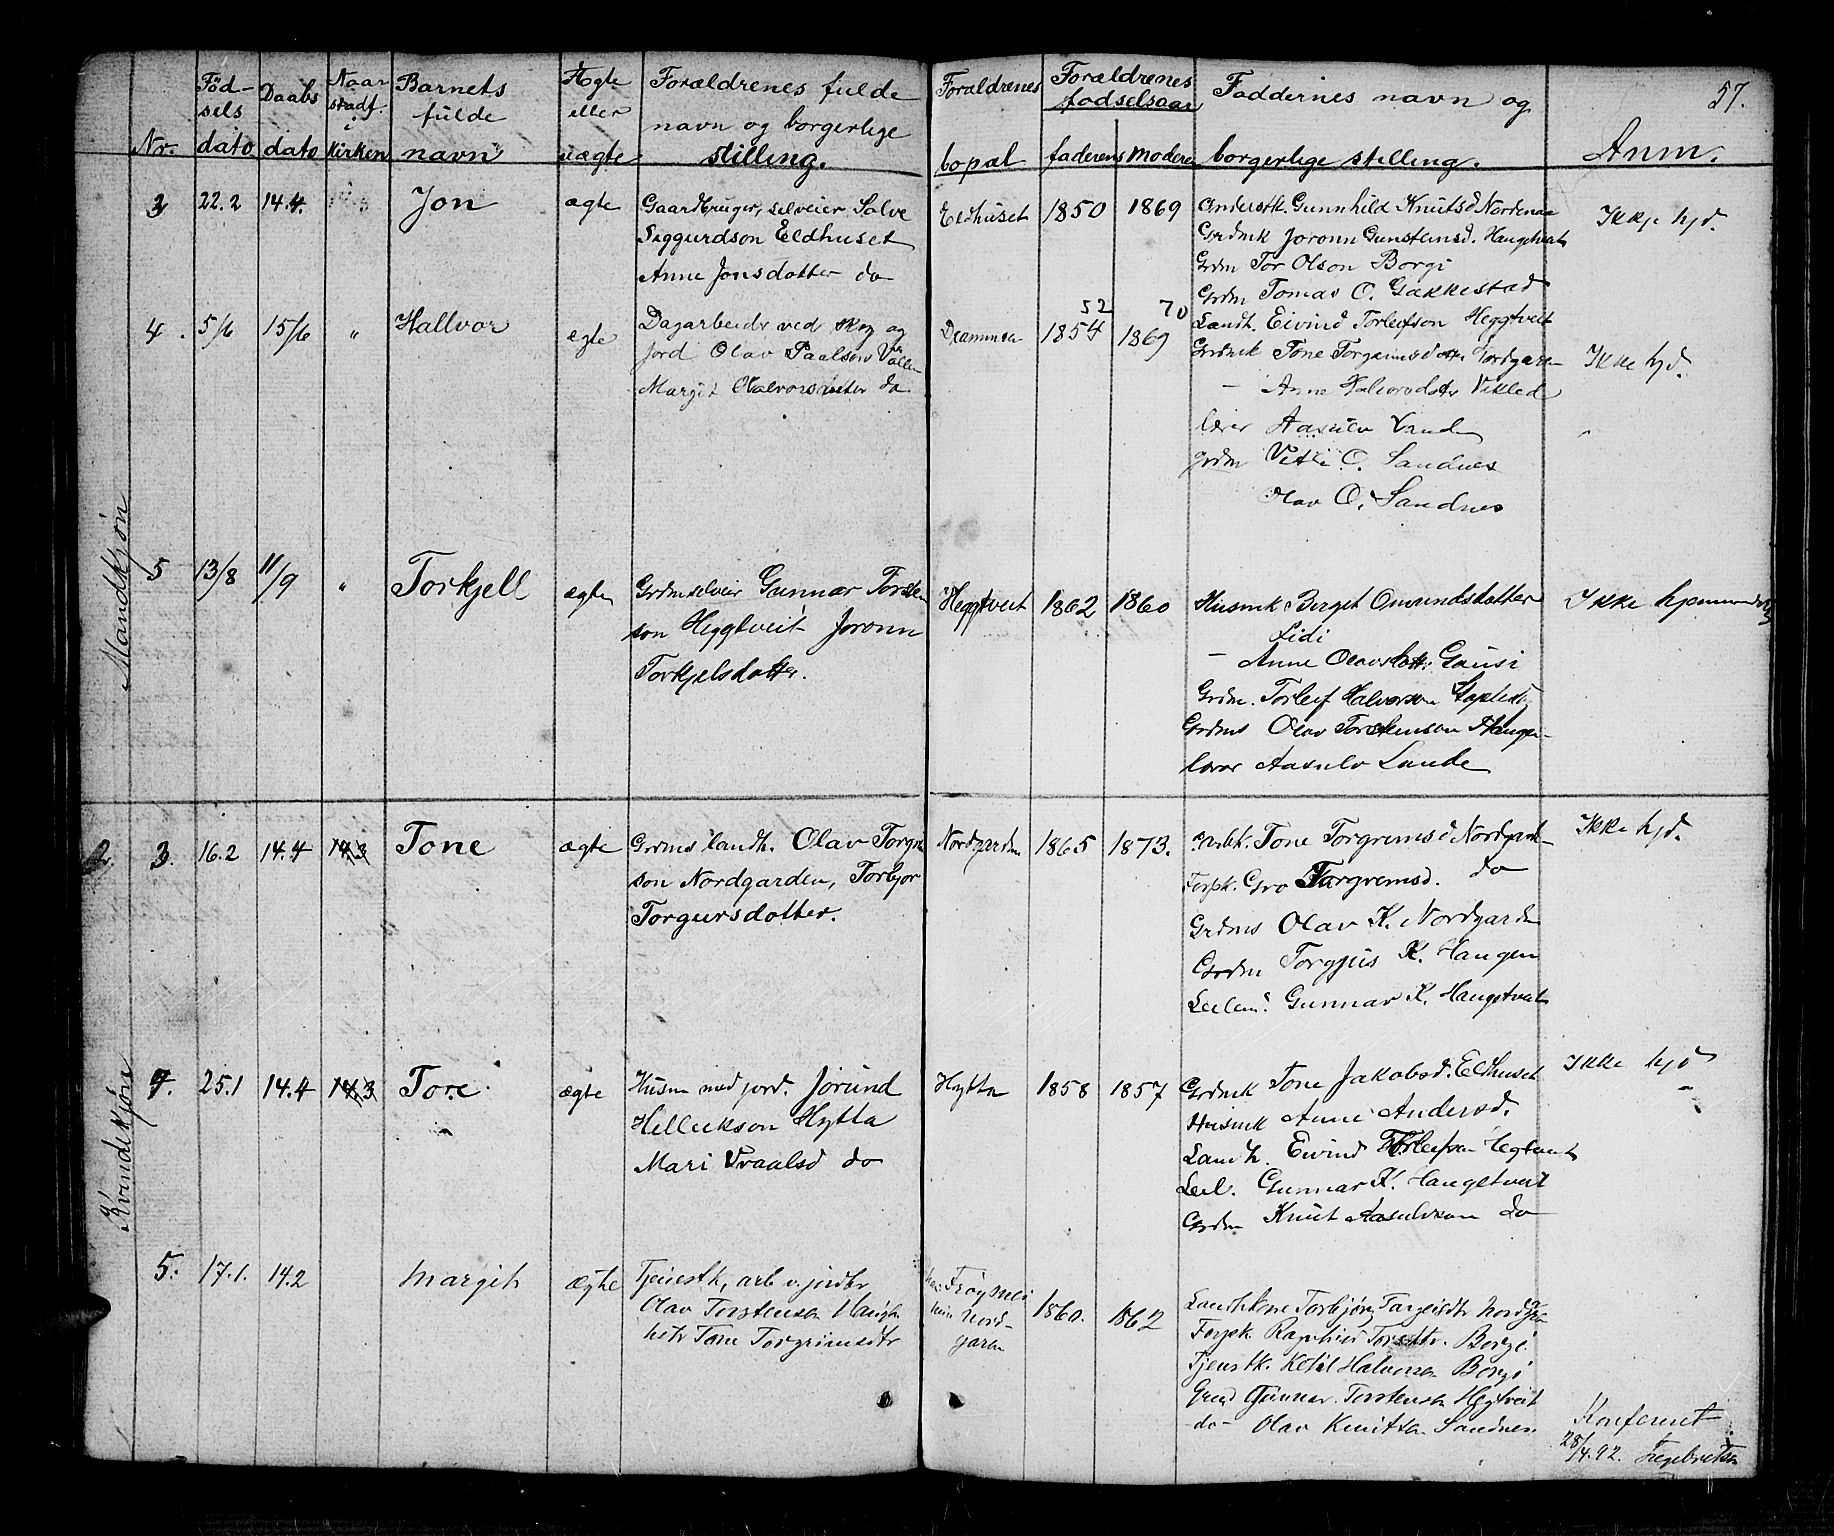 57.
Nr. Fød-sels dato Daabs dato Naar stadf. i Kirken Barnets fulde navn Ægte eller uægte Forældrenes fulde navn og borgerlige stilling. Forældrenes bopæl Forældrenes fødselsaar faderens moderens Faddernes navn og borgerlige stilling. Anm.
Mandkjøn
3 22.2 14.4. Jon ægte Gaardbruger, selveier Salve Eldhuset 1850 1869 Gunnhild Knutsd Nordgaa Ikkje hjd.
Siggurdson Eldhuset Grdmk Joronn Gunsteinsd. Haugetveit
Anne Jonsdotter do Grdm Tor Olson Borgi
Grdm Tomas O. Gakkestad
4. 5/6 15/6 " Hallvor egte Dagarbeider ved skog og Drammen 52 1854 70 1869 Landh. Eivind Torleifson Heggtveit Ikke hjd.
jord Olav Paalsen Grdmk Tone Torgrimsdotter Nordgare
Margit Halvorsdatter do — Anne Halvorsdtr Vikled
lærer Aasulv Lande
grdm Vetle O. Sandnes
Olav O. Sandnes
5 13/8 11/9 " Torkjell ægte Grdm selveier Gunnar Torsten Heggtveit 1862 1860 Husmk Berget Omundsdotter Ikke
son Heggtveit Joronn Lidi
Torkjelsdotter. — Anne Olavsdott. Gausi
Grdm. Torleif Halvorson
Grdms Olav Torsteinson Haugen
lærer Aasulv Lande
Kvindekjøn
2. 3. 16.2 14.4 14.3 Tone ægte Grdms landh. Olav Torgri Nordgarden 1865 1873. Tone Torgremsd Nordgard- Ikke hjd.
son Nordgarden, Torbjor Forpk. Gro Torgremsd. do
Torgeirsdotter. Grdms Olav K. Nordgarde
Grdm Torgjus K. Haugen
Leilend. Gunnar K. Haugetveit
4. 25.1 14.4 14.3 Tore ægte Husm med jord. Jørund Hytta 1858 1857 Grdmk Tone Jakobsd. Eldhuset Ikke hjd
Hellekson Hytta Husmk Anne Andersd. "
Mari Traalsd do Landh. Eivind Torleifson Hegtveit
Leil. Gunnar K. Haugetveit
Grdm Knut Aasulvson do
5. 17.1. 14.2 Margit ægte Tjenestk, arb v. jordbr Frøysnes 1860. 1862 Landhkone Torbjørg Targeisdtr Nordga
Olav Torstensen Haugh Nord- Forpk. Ragnhild Torstdtr. Borgi
Tone Torgrimsdtr garen Tjenstk. Ketil Halvorsen Borgi
Gunnar Torstensen Hegtveit
-do- Olav Knutsen Sandnes.
Konfereret
28/4.92. Engebretsen